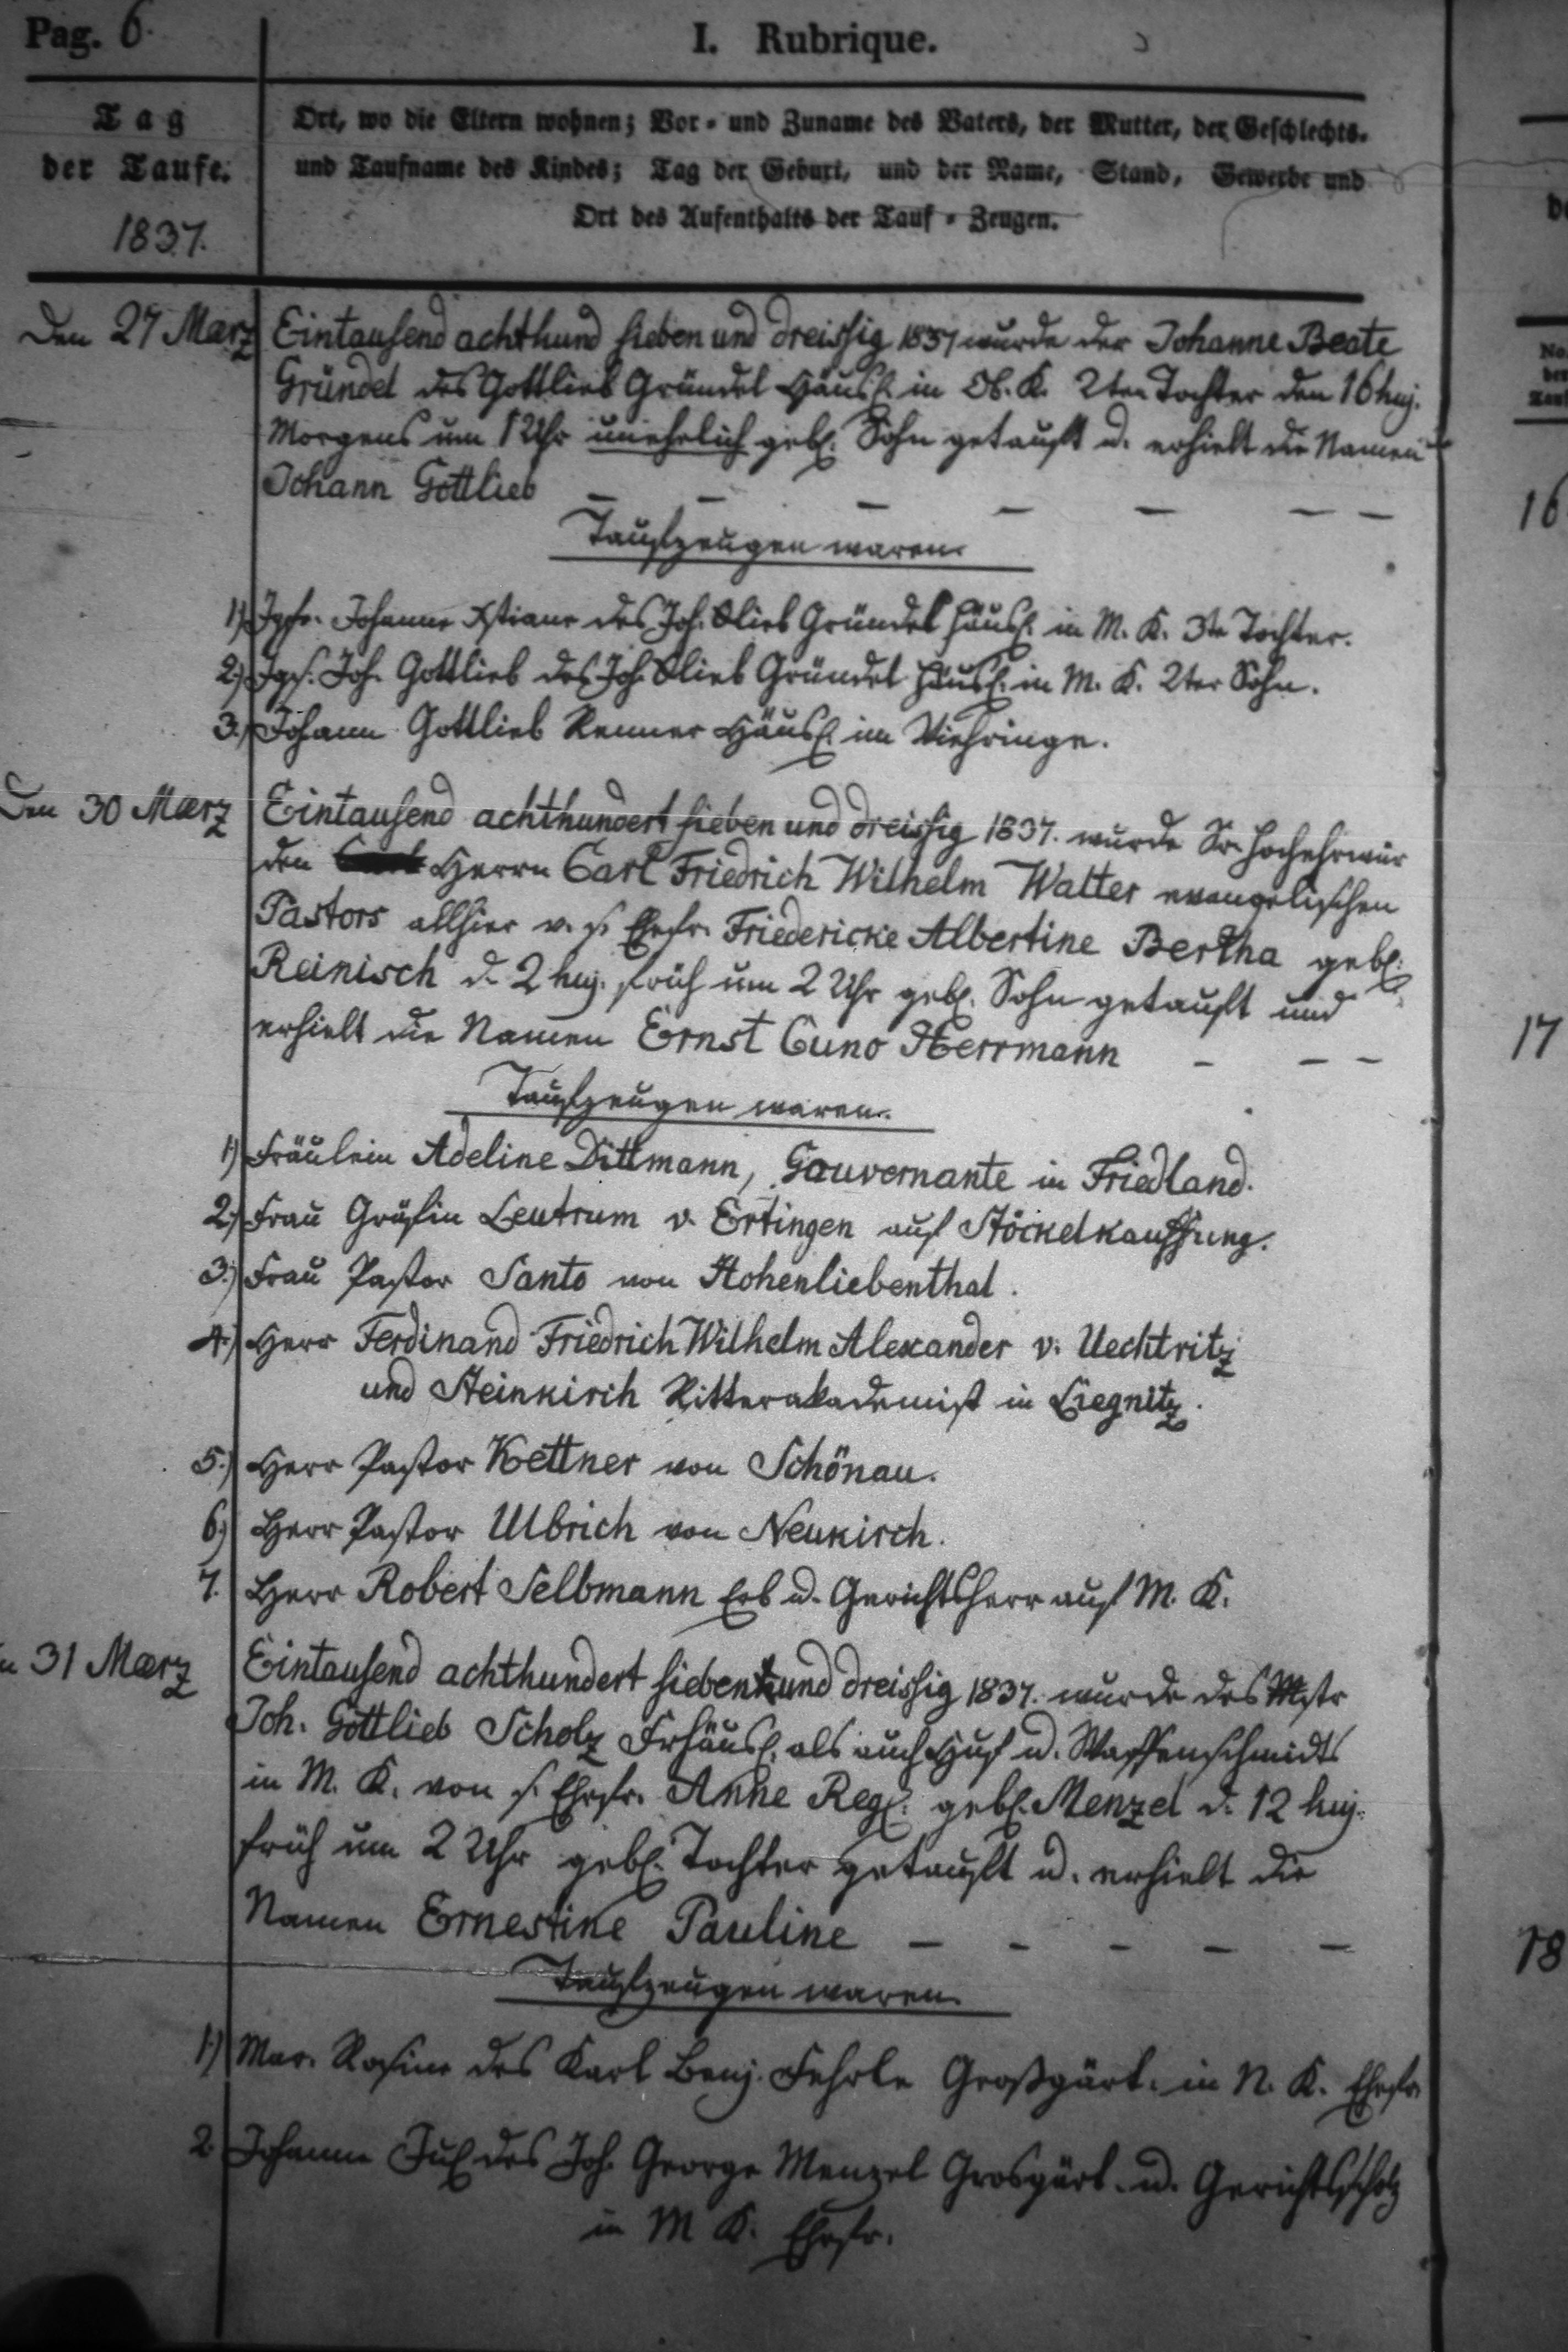 Pag. 6.
I. Rubrique.
Tag
der Taufe.
1837.
Ort, wo die Eltern wohnen; Vor- und Zuname des Vaters, der Mutter, der Geschlechts-
und Taufname des Kindes; Tag der Geburt, und der Name, Stand, Gewerbe und
Ort des Aufenthalts der Tauf-Zeugen.
Den 27 März Eintausend achthund sieben und dreissig 1837 wurde der Johanne Beate
Gründel des Gottlieb Gründel Häusl. in Ob. K. 2ten Tochter den 16 huj.
Morgens um 1 Uhr unehelich gebl. Sohn getauft u. erhielt die Namen
Johann Gottlieb — — — — — — —
Taufzeugen waren.
1) Igfr. Johanne Xstiane des Joh. Glieb Gründel Häusl. in M. K. 3te Tochter.
2.) Igs. Joh. Gottlieb des Joh. Glieb Gründel Häusl. in M. K. 2ter Sohn.
3.) Johann Gottlieb Renner Häusl. im Viehringe.
Den 30 Maerz Eintausend achthundert sieben und dreissig 1837. wurde Sr. Hochehrwür
den Herrn Carl Friedrich Wilhelm Walter evangelischen
Pastors allhier v. s. Ehefr. Friedericke Albertine Bertha gebl.
Reinisch d. 2 huj. früh um 2 Uhr gebl. Sohn getauft und
erhielt die Namen Ernst Cuno Herrmann — — —
Taufzeugen waren.
1) Fräulein Adeline Dittmann, Gouvernante in Friedland.
2.) Frau Gräfin Leutrum v. Ertingen auf Stöckelkauffung.
3.) Frau Pastor Santo von Hohenliebenthal.
4.) Herr Ferdinand Friedrich Wilhelm Alexander v. Uechtritz
und Steinkirch Ritterakademist in Liegnitz.
5.) Herr Pastor Kettner von Schönau.
6.) Herr Pastor Ulbrich von Neukirch.
7. Herr Robert Selbmann Erb u. Gerichtsherr auf M. K.
31 Maerz Eintausend achthundert sieben und dreissig 1837. wurde des Mstr
Joh. Gottlieb Scholz Frhäusl. als auch Huf u. Waffenschmidts
in M. K. von s. Ehefr. Anne Regl. gebl. Menzel d. 12 huj.
früh um 2 Uhr gebl. Tochter getauft u. erhielt die
Namen Ernestine Pauline — — — — —
Taufzeugen waren.
1.) Mar. Rosine des Karl Benj. Fehrle Großgärt. in N. K. Ehefr.
2. Johanne Jul des Joh. George Menzel Grosgärt. u. Gerichtsscholz
in M K. Ehefr.
16
17
18